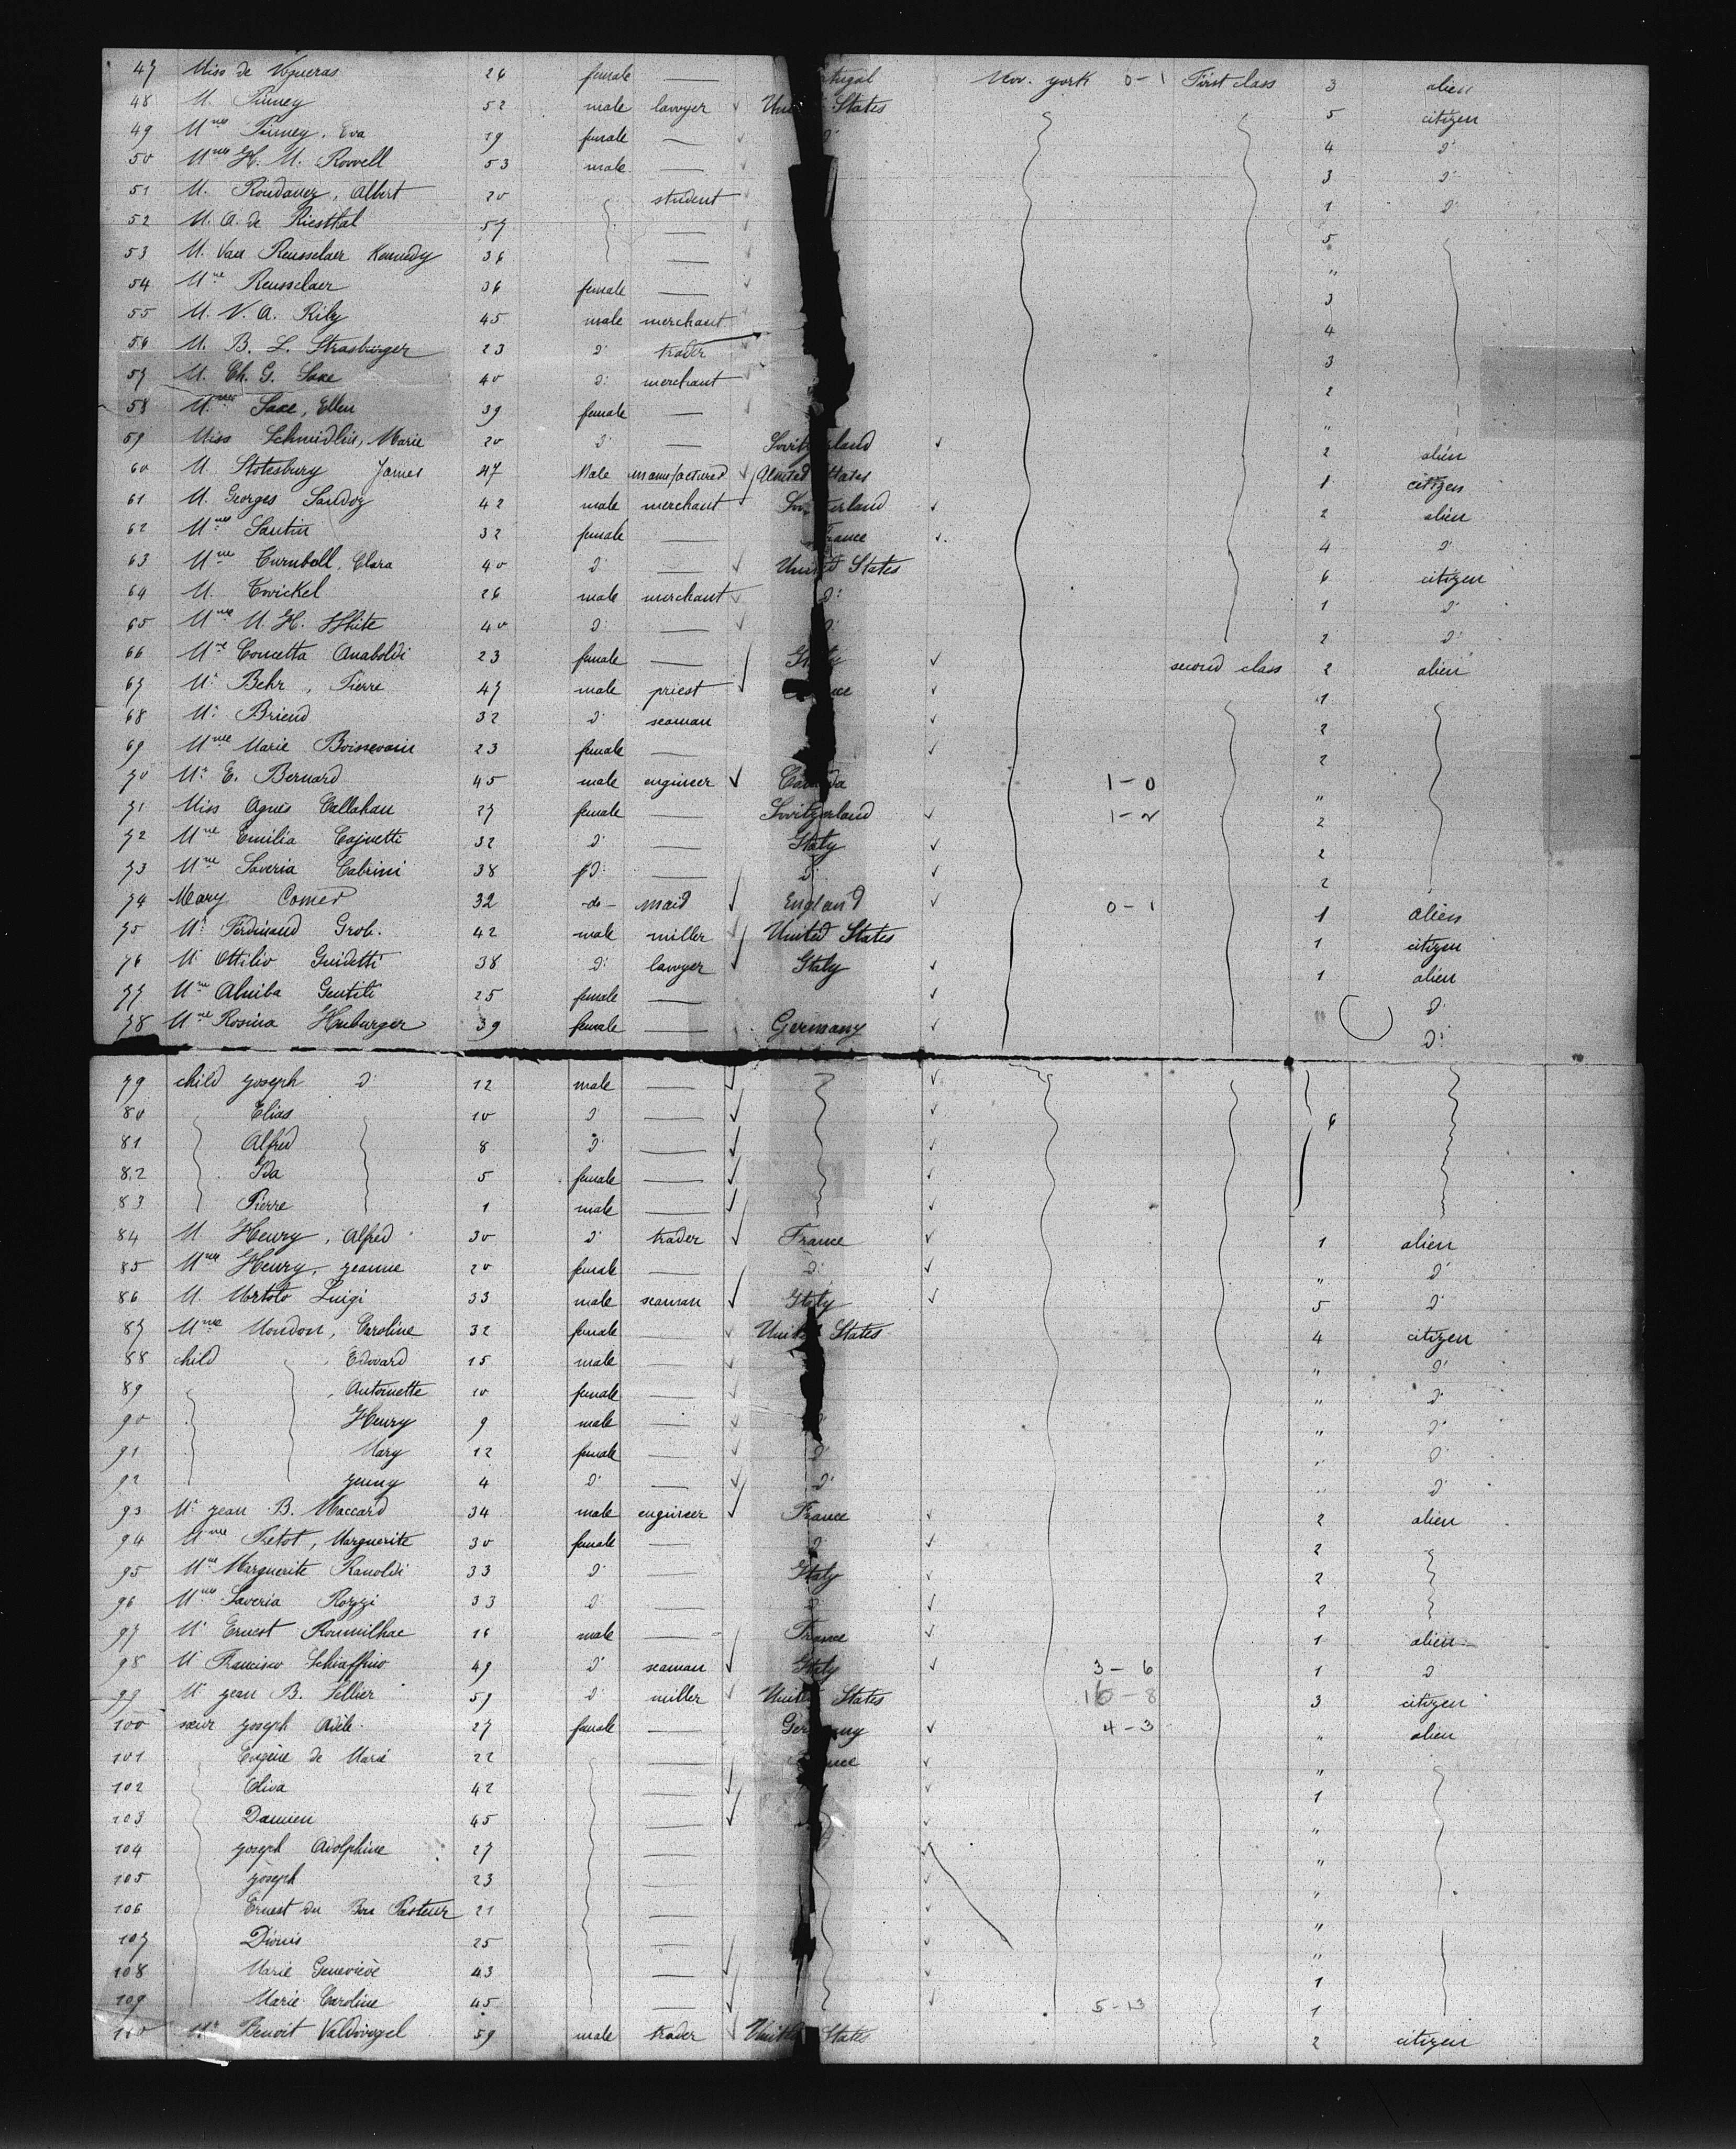 47 Miss de 26 female — tugal New. york 0-1 First class 3 alien
48 M. Pinney 52 male lawyer United States 5 citizen
49 Mme Pinney, Eva 29 female — d: 4 d:
50 Mme H. M. Rowell 53 male — 3 d:
51 M. Roudanez, Albert 20 student 1 d:
52 M. A. de Riesthal 57 — 5
53 M. Van Rensselaer Kennedy 36 — "
54 Mme Rensselaer 36 female — 3
55 M. V. A. Rily 45 male merchant 4
56 M. B. L. Strasburger 23 d: trader 3
57 M. Ch. G. Saxe 40 d: merchant 2
58 Mme Saxe, Ellen 39 female — "
59 Miss Schmidlin, Marie 20 d: — Switzerland 2 alien
60 M Stotesbury James 47 Male manufactured States 1 citizen
61 M. Georges Sandoz 42 male merchant Switzerland 2 alien
62 Mme Santin 32 female — France 4 d:
63 Mme Turnbull, Clara 40 d: — United States 6 citizen
64 M. Twickel 26 male merchant d: 1 d:
65 Mme M. H. White 40 d: — d: 2 d:
66 Mme Concetta Anaboldi 23 female — Italy second class 2 alien
67 Mr Behr, Pierre 47 male priest 1
68 Mr Briend 32 d: seaman 2
69 Mme Marie Boissevain 23 female — 2
70 Mr E. Bernard 45 male engineer Canada 1-0 "
71 Miss Agnes Callahan 27 female — Switzerland 1-2 2
72 Mme Emilia Cajnetti 32 d: — Italy 2
73 Mme Saveria Cabrini 38 d: — d: 2
74 Mary Comer 32 -do- maid England 0-1 1 alien
75 Mr Ferdinand Grob. 42 male miller United States 1 citizen
76 Mr Ottilio Guidetti 38 d: lawyer Italy 1 alien
77 Mme Gentili 25 female — " d:
78 Mme Rosina Hruburger 39 female — Germany d:
79 child Joseph d: 12 male —
80 Elias 10 d: — 6
81 Alfred 8 d: —
82 Ida 5 female —
83 Pierre 1 male —
84 M. Henry, Alfred 30 d: trader France 1 alien
85 Mme Henry, Jeanne 20 female — d: " d:
86 M. Mortolo Luigi 33 male seaman Italy 5 d:
87 Mme Mondon, Caroline 32 female — United States 4 citizen
88 child Edouard 15 male — " d:
89 Antoinette 10 female — " d:
90 Henry 9 male — " d:
91 Mary 12 female — d: " d:
92 Jenny 4 d: — d: " d:
93 Mr Jean B. Maccard 34 male engineer France 2 alien
94 Mme Tretot, Marguerite 30 female — d: 2
95 Mme Marguerite Ranoldi 33 d: — Italy 2
96 Mme Saveria Rozzi 33 d: — d: 2
97 Mr Ernest Roumilhac 16 male — France 1 alien
98 M Francisco Schiaffino 49 d: seaman Italy 3-6 1 d:
99 Mr Jean B. Sellier 59 d: miller United States 16-8 3 citizen
100 sœur Joseph Adèle 27 female — Germany 4-3 " alien
101 Eugène de Marie 22 — France "
102 Oliva 42 — 1
103 Damien 45 — "
104 Joseph Adolphine 27 — "
105 Joseph 23 — "
106 Ernest du Bon Pasteur 21 — "
107 Dionis 25 — "
108 Marie Geneviève 43 — 1
109 Marie Caroline 45 — 5-13 1
110 Mr Benoit Valdvogel 59 male trader United States 2 citizen